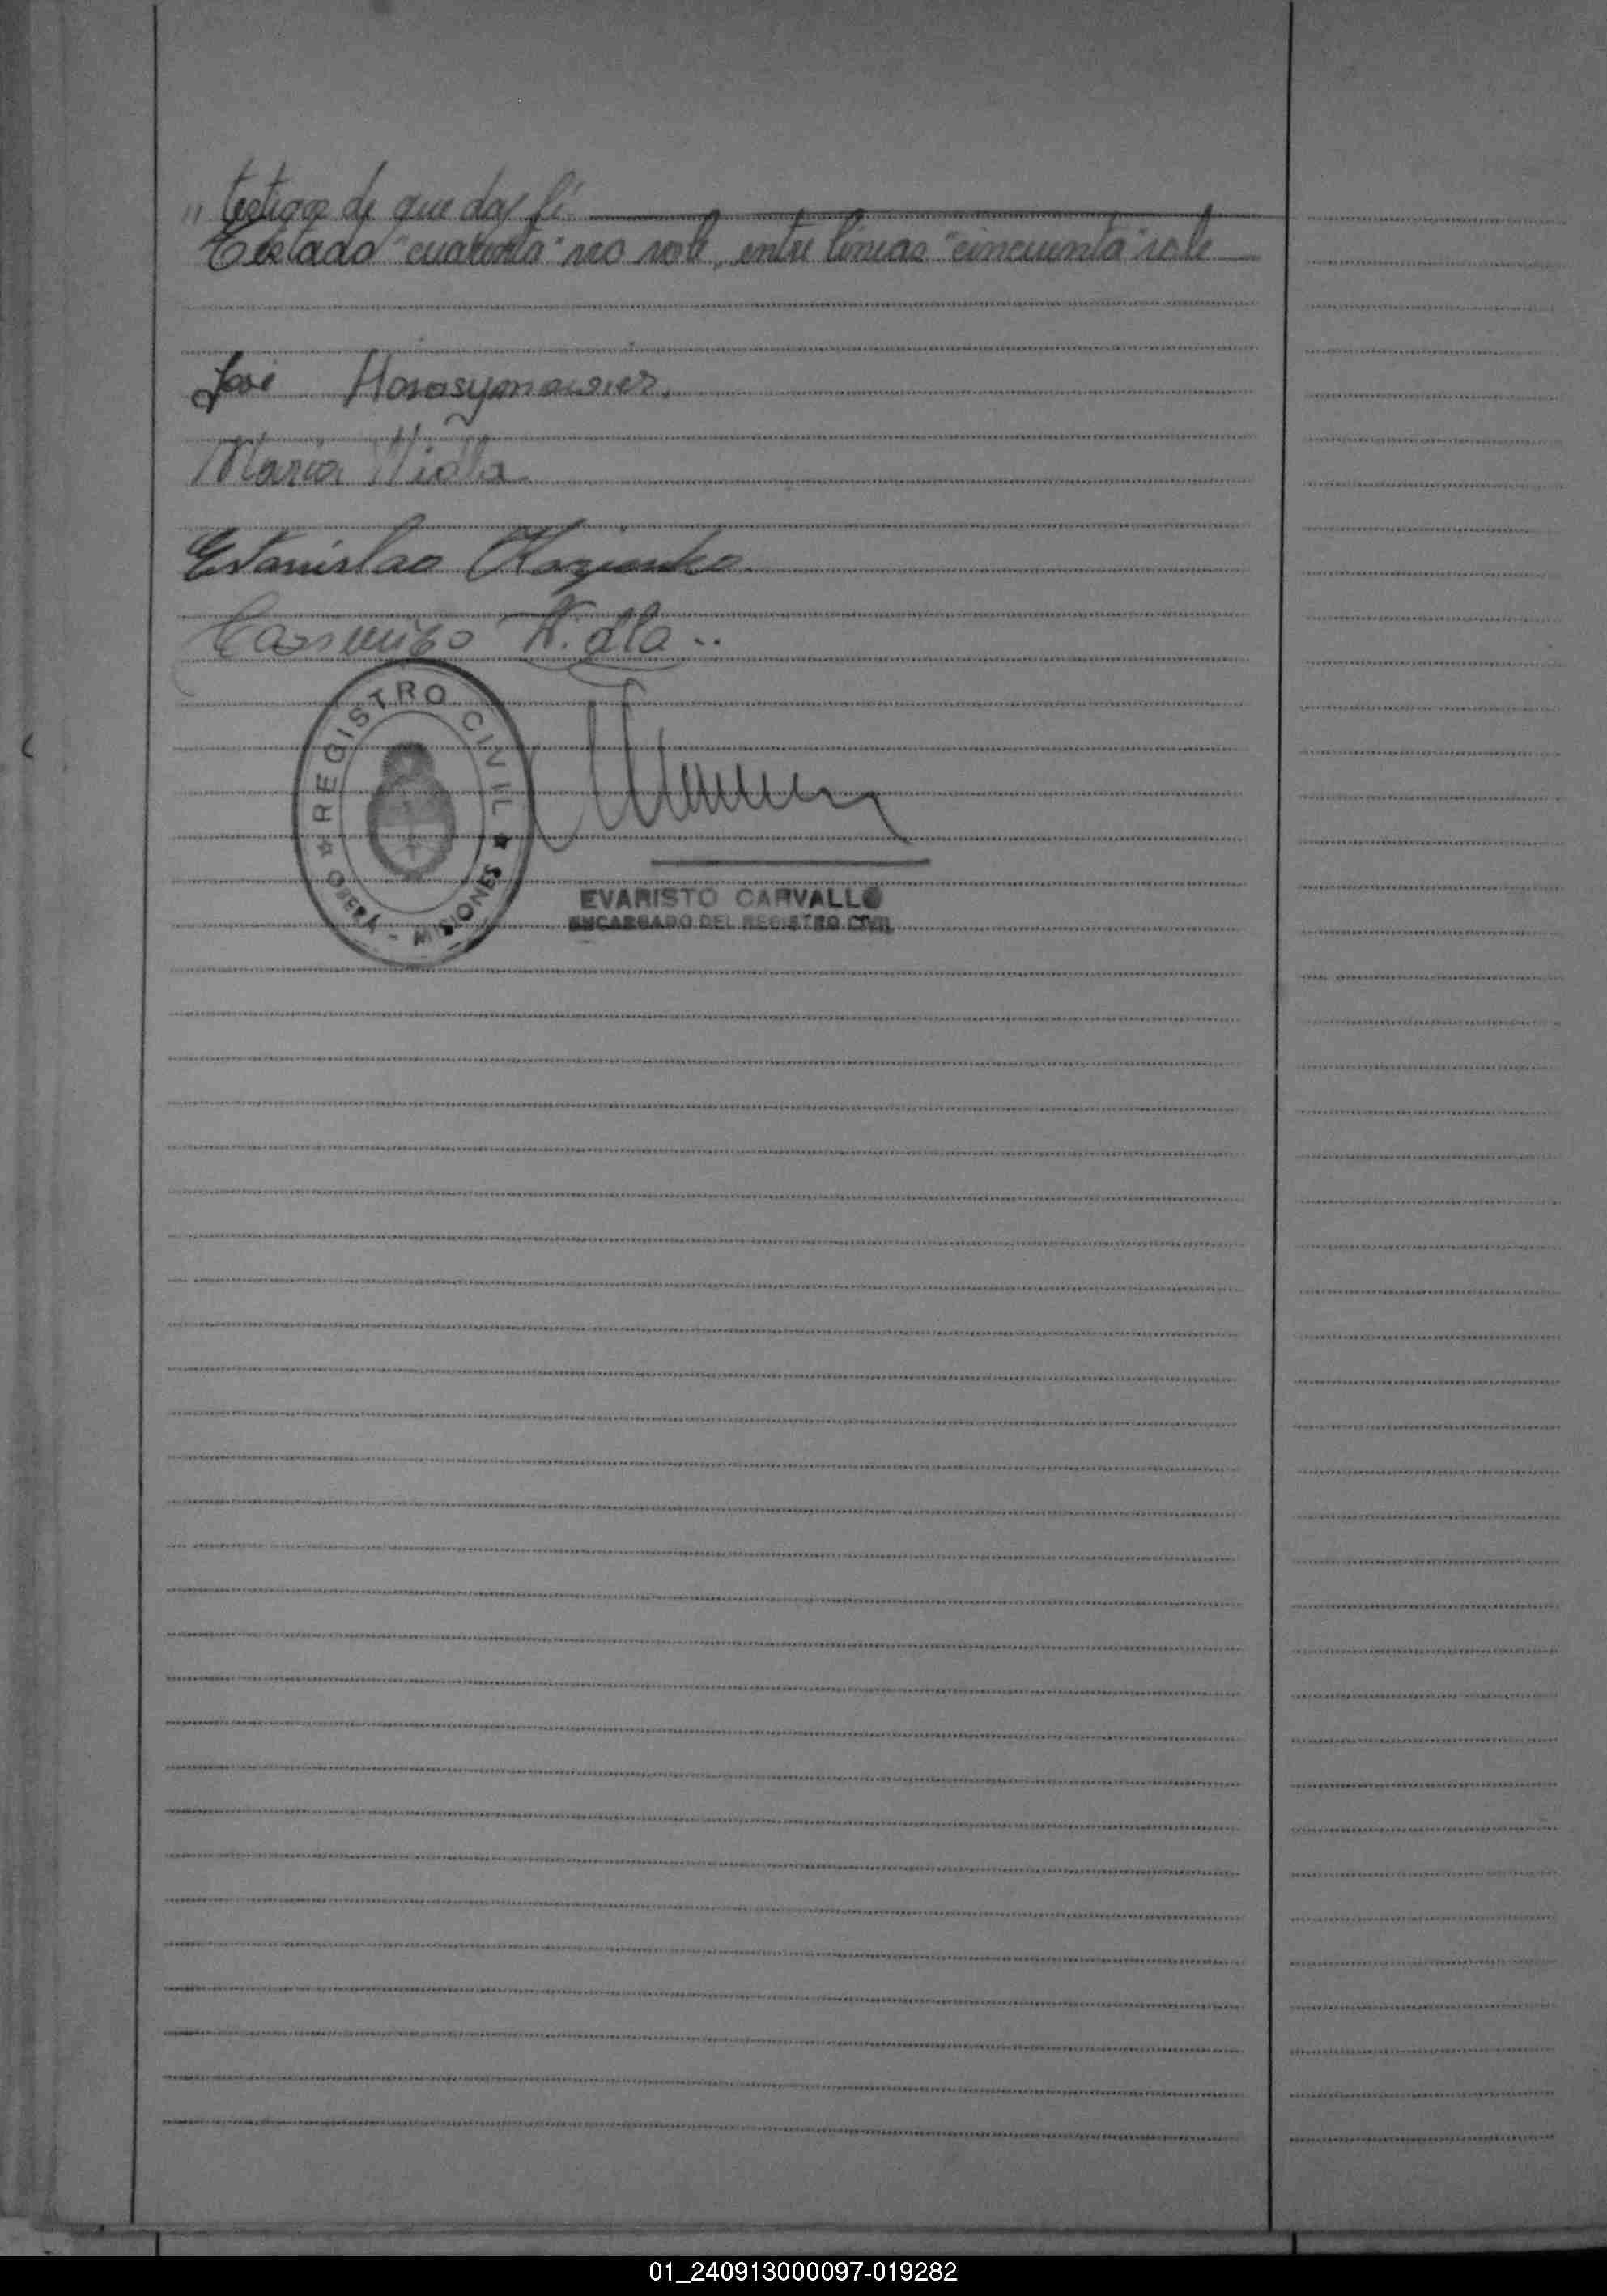 " testigos de que doy fé.
Testado "cuarenta" no vale, entre líneas "cincuenta" vale
José
Maria
Estanislao
Casimiro
REGISTRO CIVIL
OBERÁ - MISIONES
EVARISTO CARVALLO
ENCARGADO DEL REGISTRO CIVIL
01_240913000097-019282